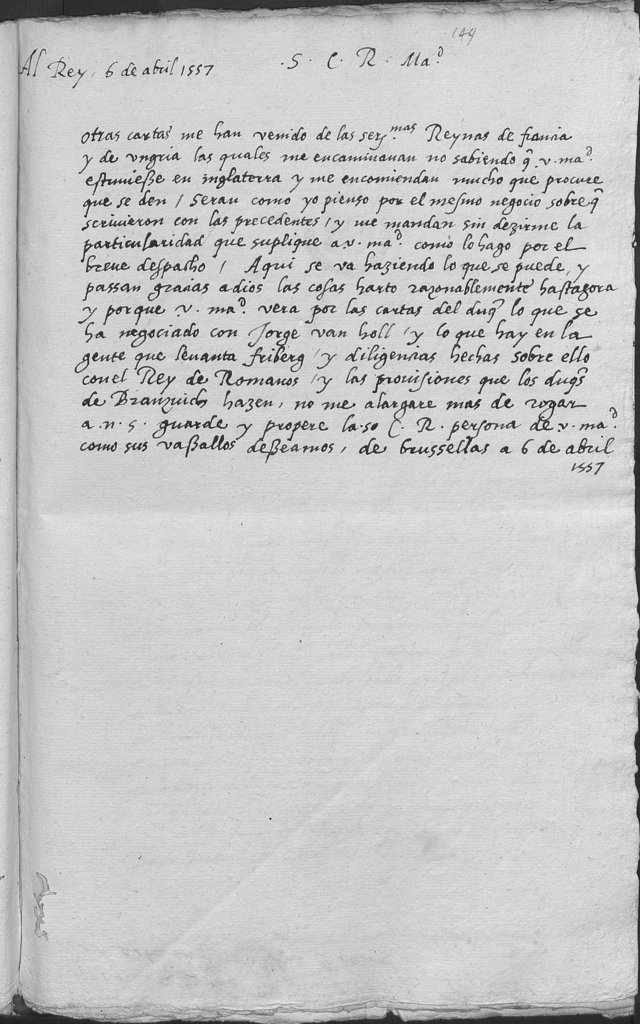 144
Al Rey, 6 de abril 1557
.S. C. R. Ma.d
otras cartas me han venido de las ser.mas Reynas de francia
y de vngria las quales me encaminauan no sabiendo q̃ .v. ma.d
estuuiesse en inglaterra y me encomiendan mucho que procure
que se den / seran como yo pienso por el mesmo negocio sobre q̃
scriuieron con las precedentes / y me mandan sin dezirme la
particularidad que suplique a .v. ma.d como lo hago por el
breue despacho / Aqui se va haziendo lo que se puede, y
passan gracias a dios las cosas harto razonablemente hastagora
y porque .v. ma.d vera por las cartas del duq̃ lo que se
ha negociado con Jorge van holl / y lo que hay en la
gente que leuanta friberg / y diligencias hechas sobre ello
conel Rey de Romanos / y las prouisiones que los duq̃s
de Branzuich hazen, no me alargare mas de rogar
a .n. s. guarde y prospere la .so C. R. persona de .v. ma.d
como sus vassallos desseamos, de brussellas a 6 de abril
1557